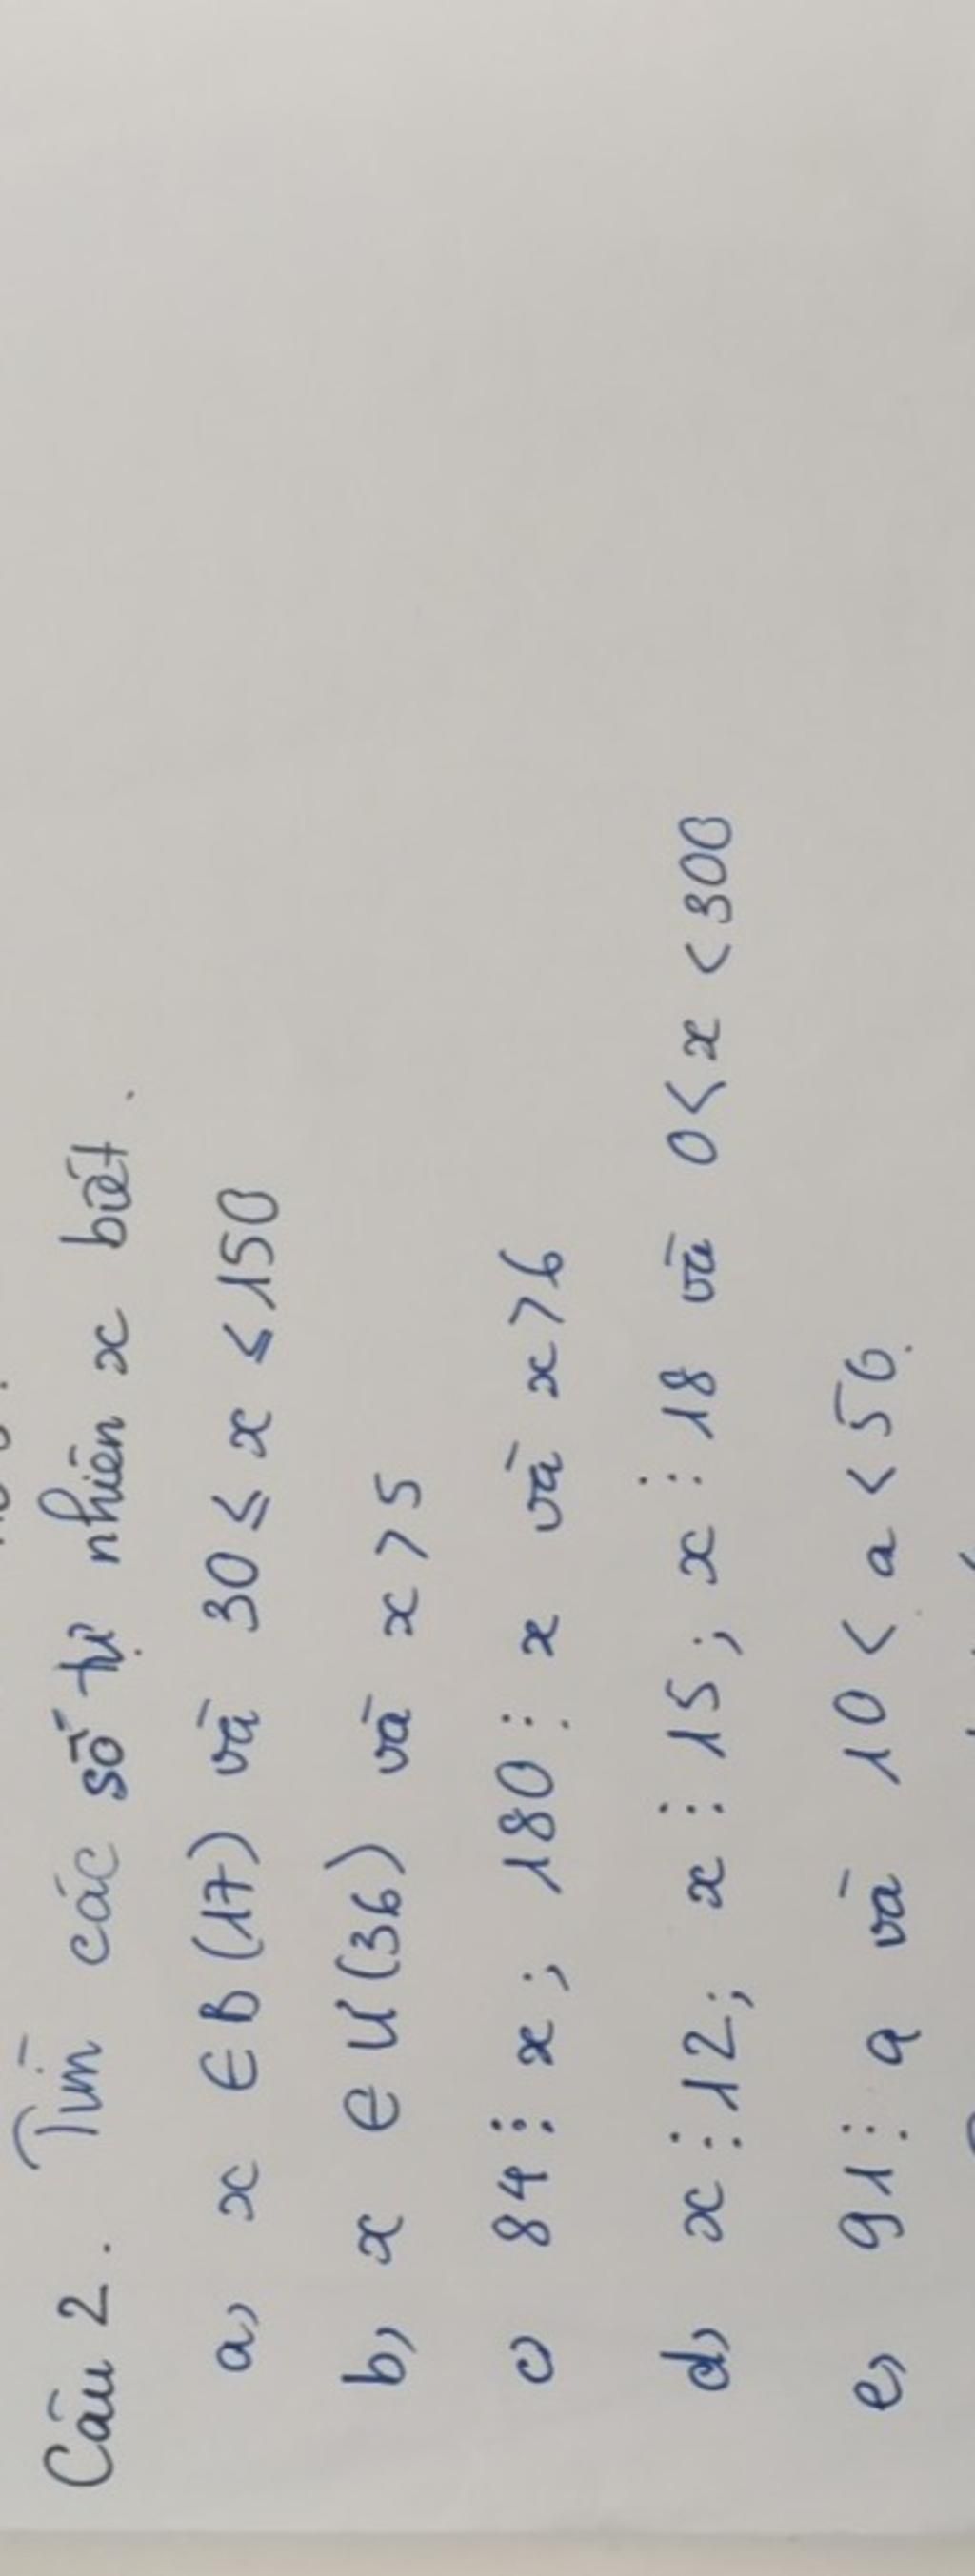 Câu 2. Tìm các số tự nhiên x biết.
a, x ∈ B(17) và 30 ≤ x ≤ 150
b, x ∈ Ư(36) và x > 5
c) 84 ⋮ x; 180 ⋮ x và x > 6
d, x ⋮ 12; x ⋮ 15; x ⋮ 18 và 0 < x < 300
e, 91 ⋮ a và 10 < a < 50.